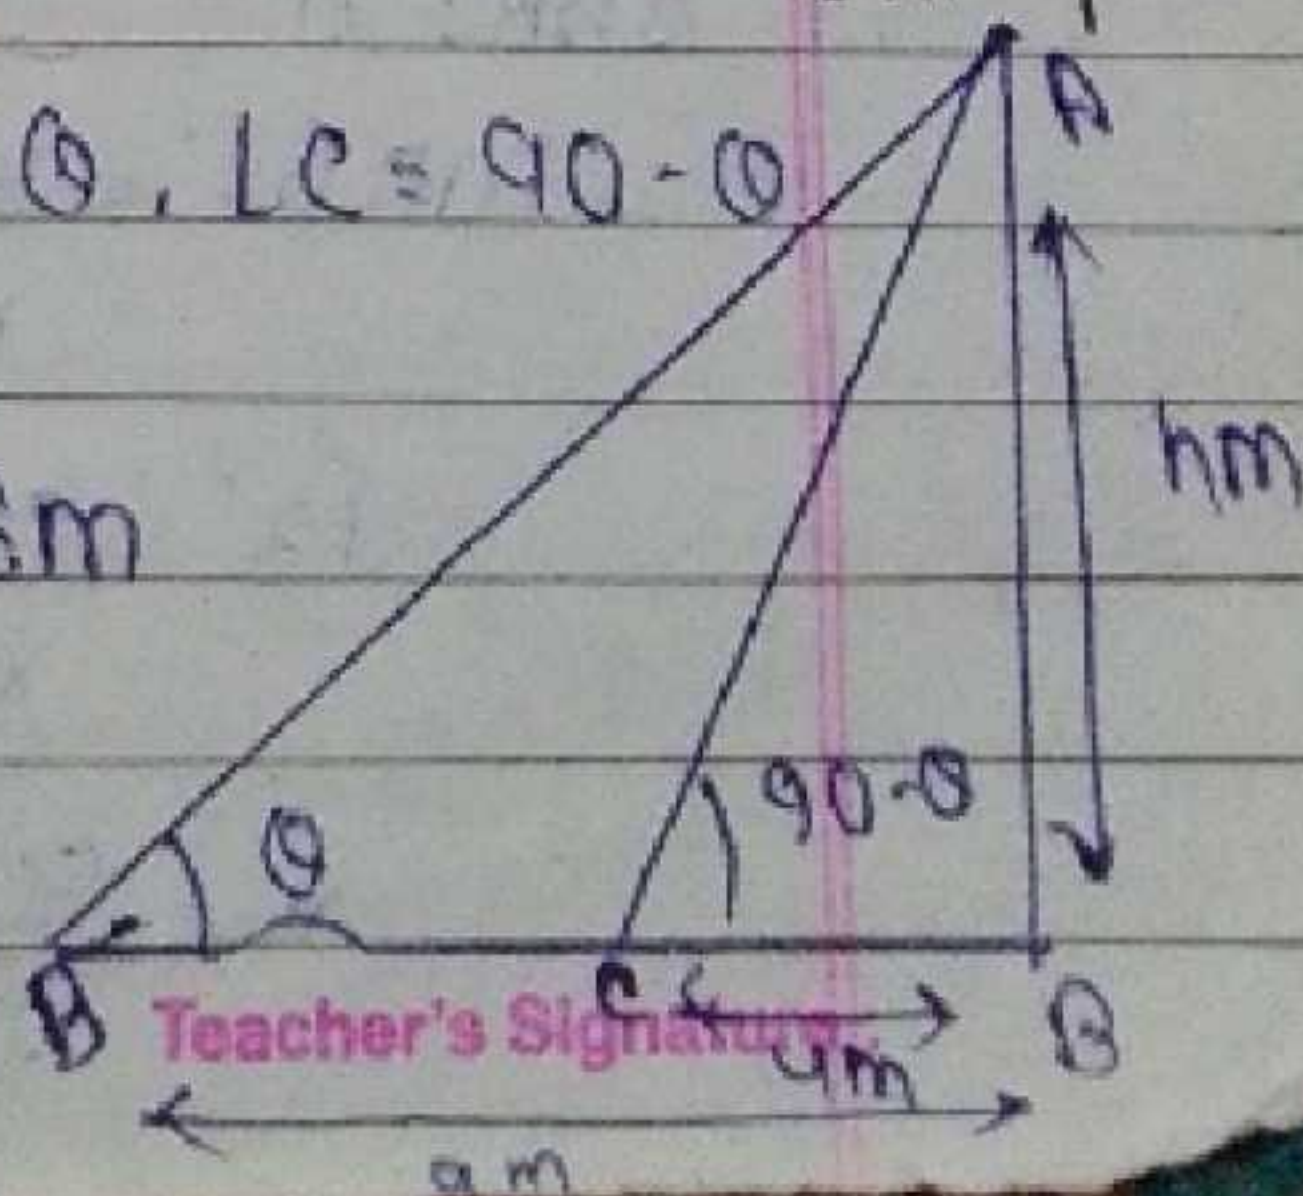 θ, ∠C = 90-θ
A
hm
m
90-θ
θ
B
C
B
Teacher's Signature
4m
9m